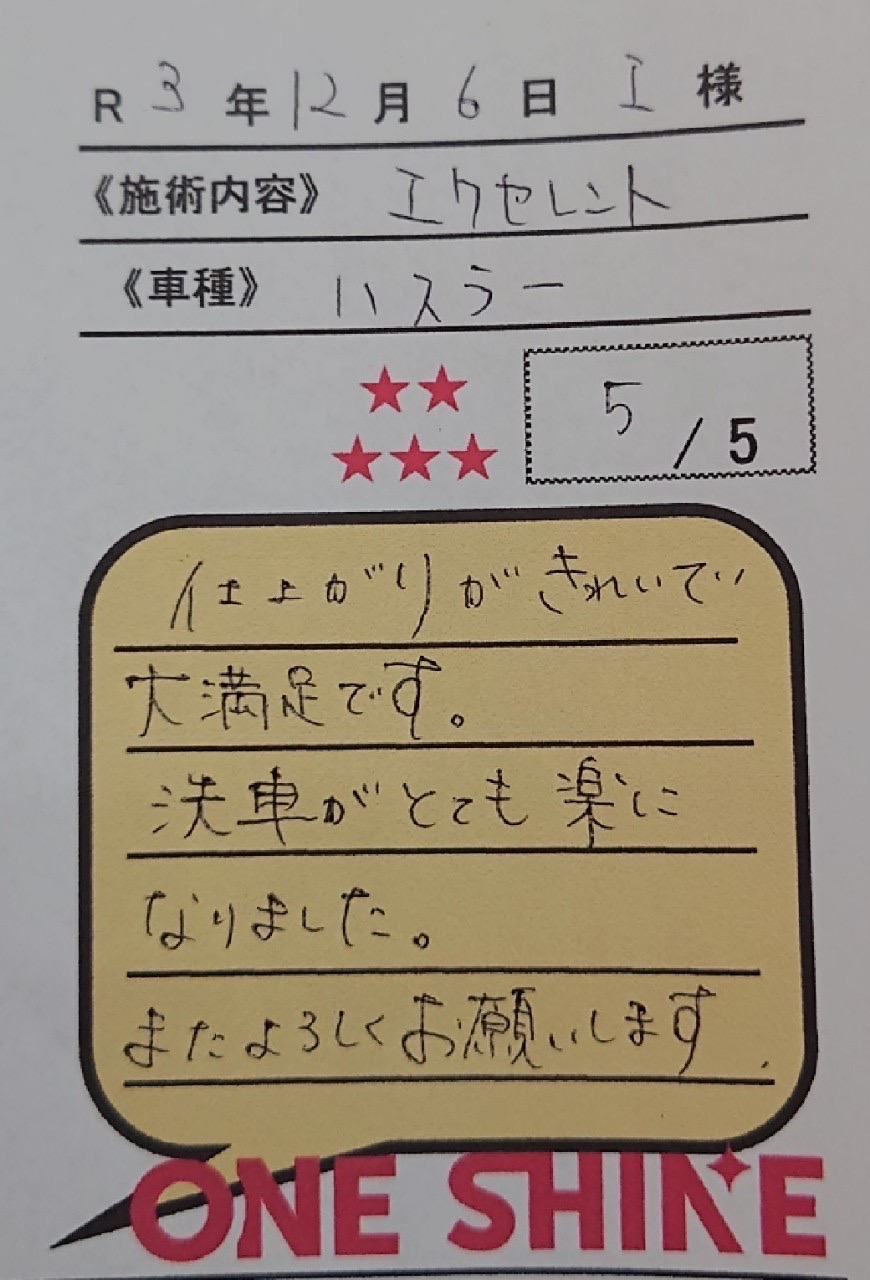 R 3 年 12 月 6 日 I 様
《施術内容》 エクセレント
《車種》 ハスラー
5 / 5
仕上がりがきれいで
大満足です。
洗車がとても楽に
なりました。
またよろしくお願いします.
ONE SHINE